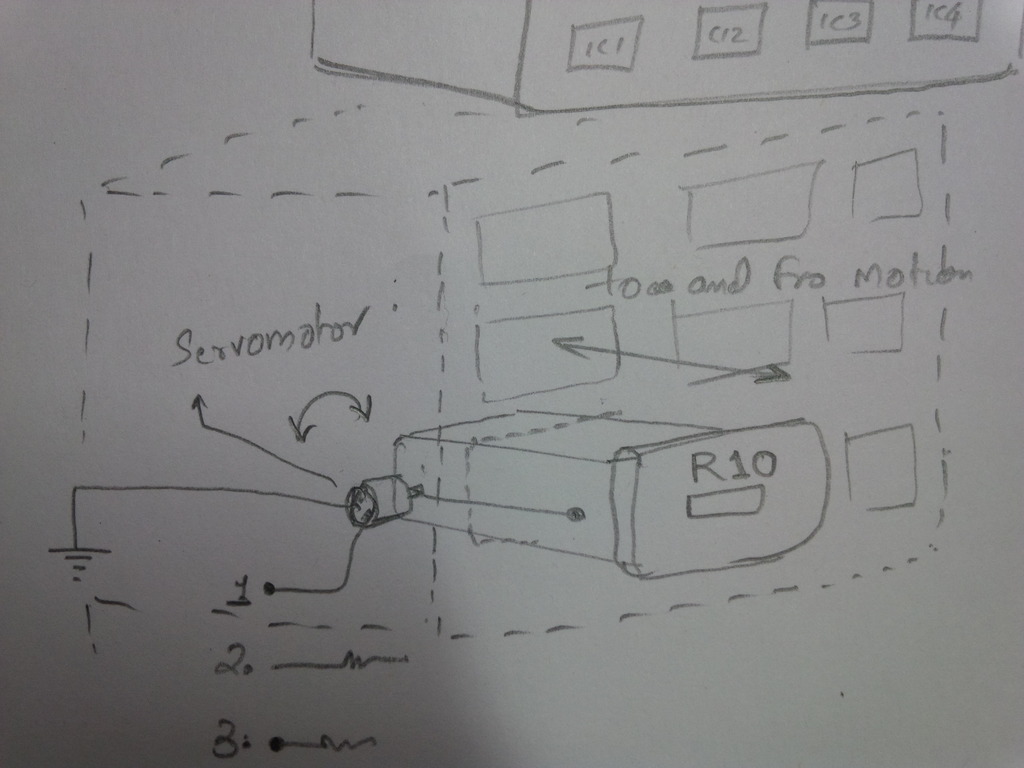 IC1 IC2 IC3 IC4
to and fro motion
Servomotor
R10
1
2.
3.